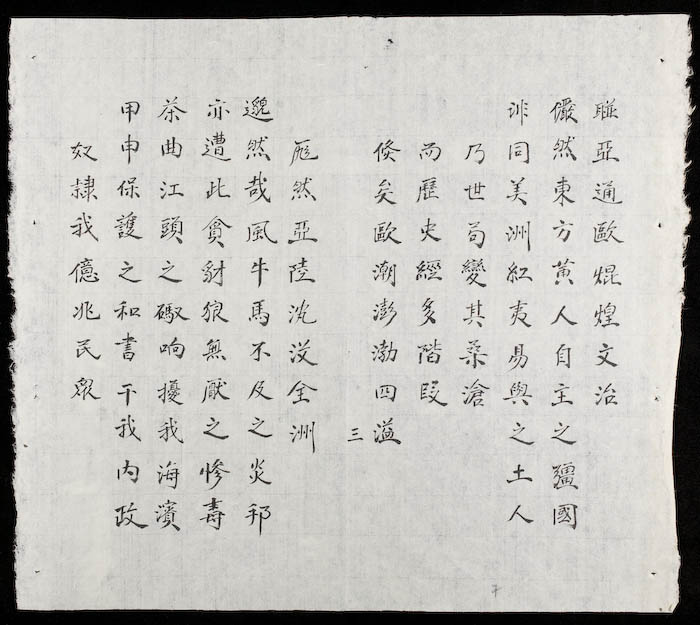 聯亞通歐焜煌文治
儼然東方黃人自主之疆國
誹同美洲紅夷易與之土人
乃世局變其桑滄
而歷史經多階段
倏矣歐潮澎渤四溢
三
厖然亞陸沈沒全洲
邈然哉風牛馬不及之炎邦
亦遭此貪豺狼無厭之慘毒
茶曲江頭之礮响擾我海濱
甲申保護之和書干我內政
奴隸我億兆民眾